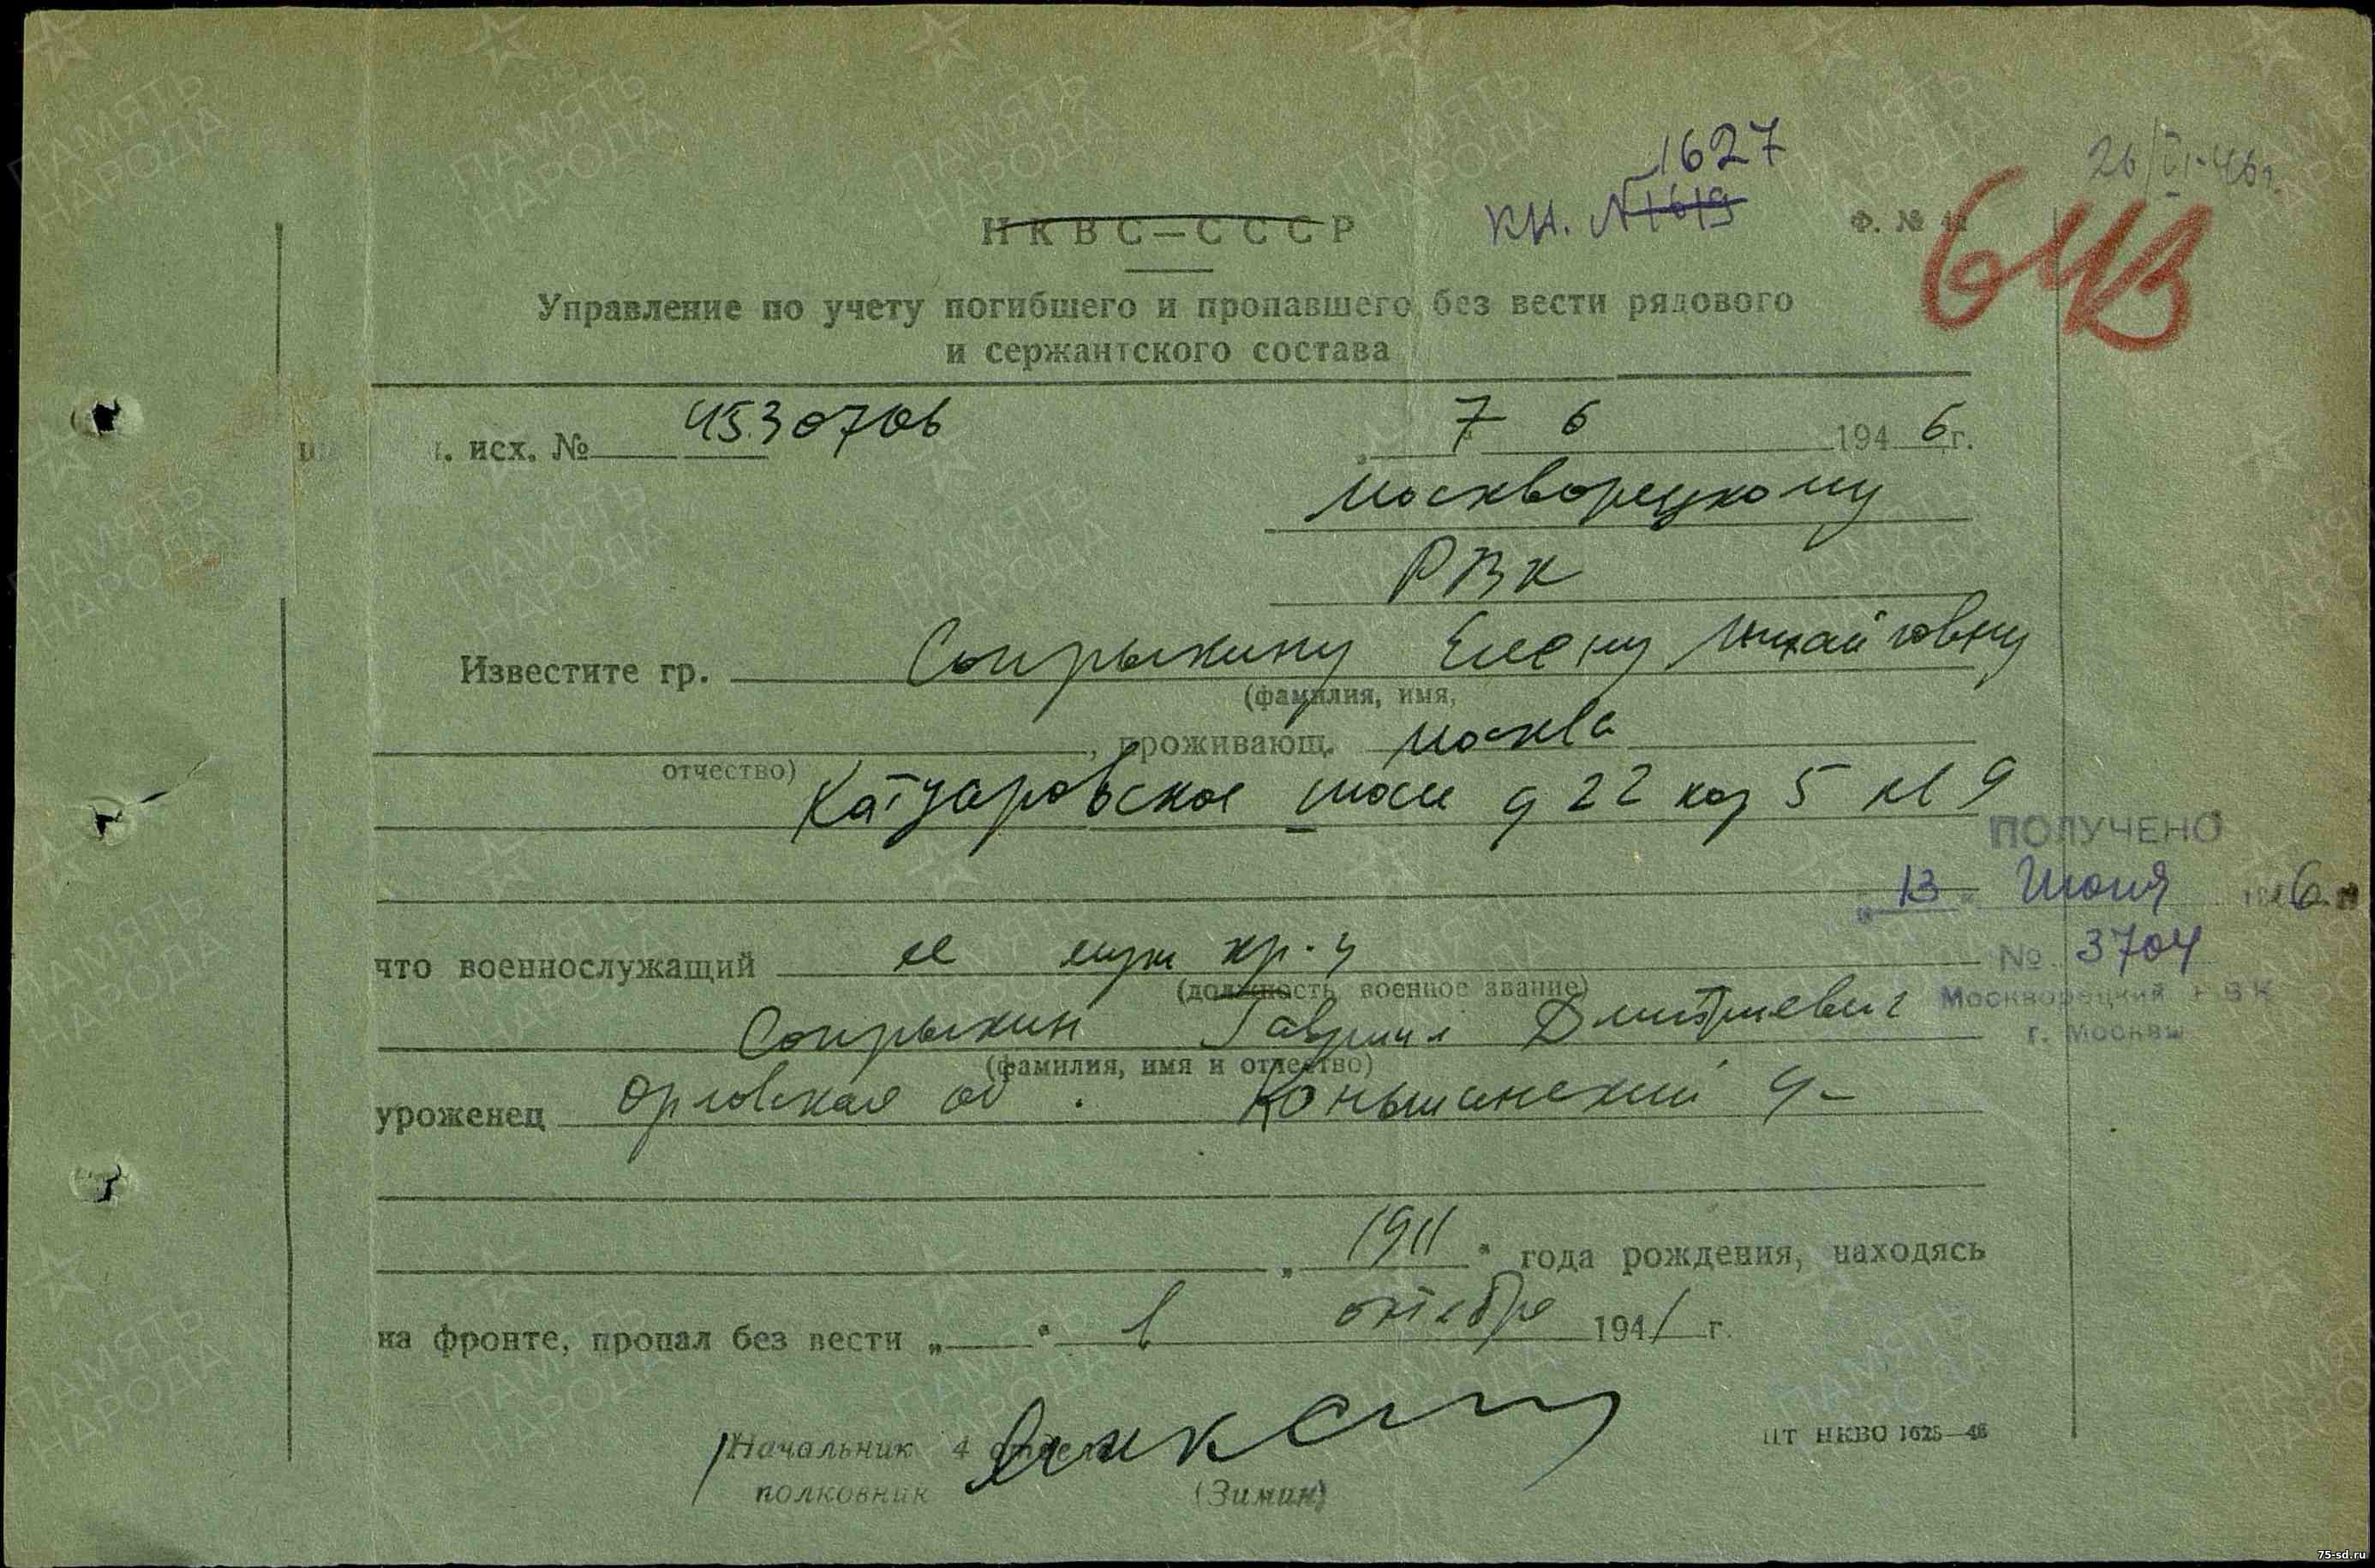 1627
26/VI-46г.
кн. №1619
Ф. №
НКВС—СССР
64В
Управление по учету погибшего и пропавшего без вести рядового
и сержантского состава
исх. № 4530706
„7" 6 1946г.
Москворецкому
РВК
Известите гр. Сопрыкину Елену Михайловну
(фамилия, имя,
, проживающ. Москва
отчество)
шоссе д 22 кор 5 кв 9
ПОЛУЧЕНО
"13" Июня 1946 г.
что военнослужащий ее муж кр-ц
№ 3704
(должность военное звание)
Москворецкий РВК
Сопрыкин Гавриил Дмитриевич
г. Москвы
(фамилия, имя и отчество)
уроженец Орловская об.
„1911" года рождения, находясь
на фронте, пропал без вести „ " в октябре 1941 г.
Начальник 4 отдела
полковник (Зимин)
ПТ НКВО 1625—46
ПАМЯТЬ НАРОДА
75-sd.ru